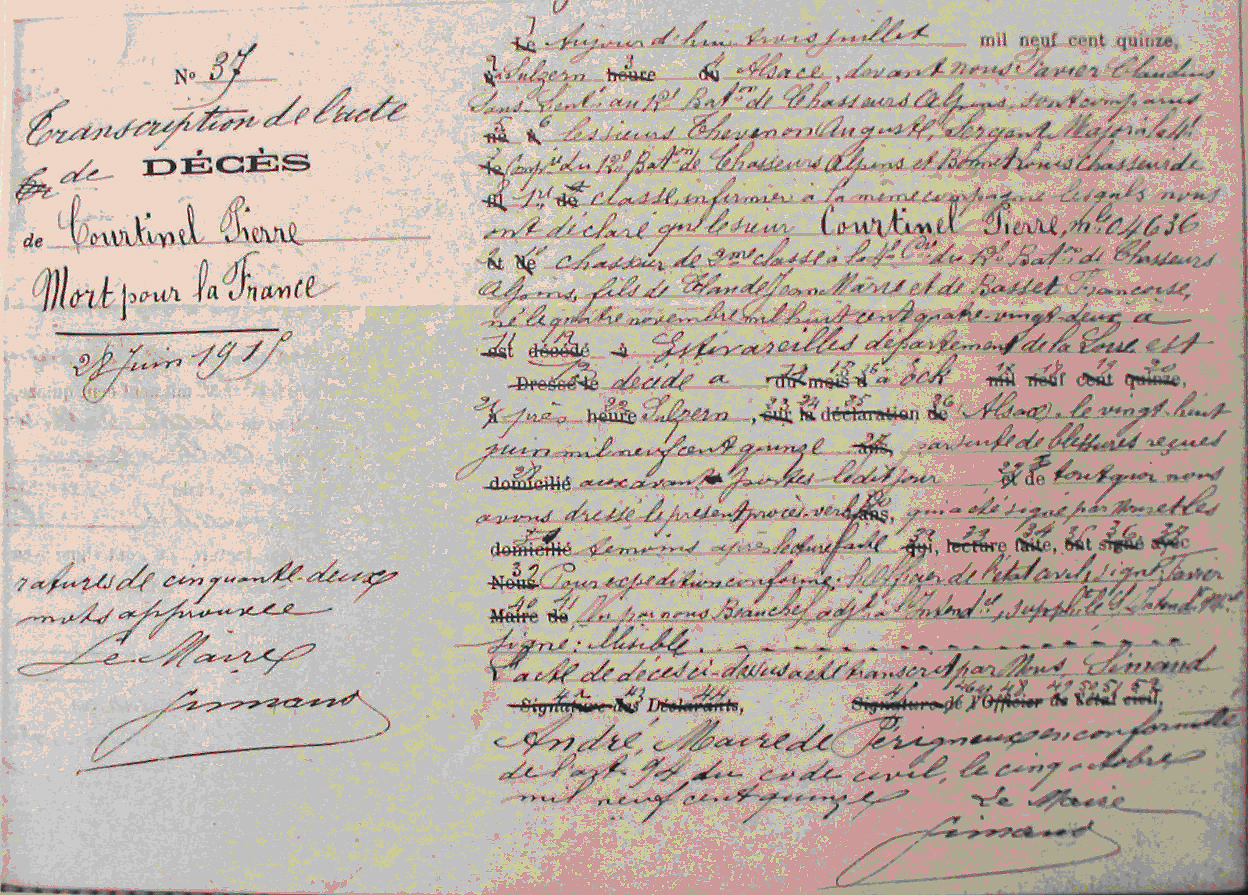 N° 37
Transcription de l'acte
de
DÉCÈS
de Courtinel Pierre
Mort pour la France
28 Juin 1915
ratures de cinquante-deux
mots approuvée
Le Maire
Simand
Le Aujourd'hui trois juillet mil neuf cent quinze,
à Sulzern heure du Alsace, devant nous Favier Claudius
Sous Lieut. au 12e Baton de Chasseurs Alpins, sont comparus
les sieurs Thevenon Auguste, Sergent Major à la
Compie du 12e Baton de Chasseurs Alpins et Bonnet Louis chasseur de
1re de classe, infirmier à la même compagnie lesquels nous
ont déclaré que le sieur Courtinel Pierre, mle 04636
chasseur de 2me classe à la 4e Cie du 12e Baton de Chasseurs
Alpins, fils de Claude Jean Marie et de Basset Françoise,
né le quatre novembre mil huit cent quatre-vingt-deux à
est décédé à Estivareilles département de la Loire est
Dressé le décédé à du mois d à Eck mil neuf cent quinze,
à près heure Sulzern, sur la déclaration de Alsace, le vingt-huit
juin mil neuf cent quinze ans, par suite de blessures reçues
domicilié aux avant postes ledit jour et de tout quoi nous
avons dressé le présent procès-verbal ans, qui a été signé par Nous et les
domicilié témoins après lecture faite qui, lecture faite, ont signé avec
Nous Pour expédition conforme: l'Officier de l'état civil, signé Favier
Maire de Vu par nous
signé: illisible
L'acte de décès ci-dessus a été transcrit par Nous Simand
Signature des Déclarants, Signature de l'Officier de l'état civil,
André, Maire de Périgneux en conformité
de l'art. 94 du code civil, le cinq octobre
mil neuf cent quinze Le Maire
Simand